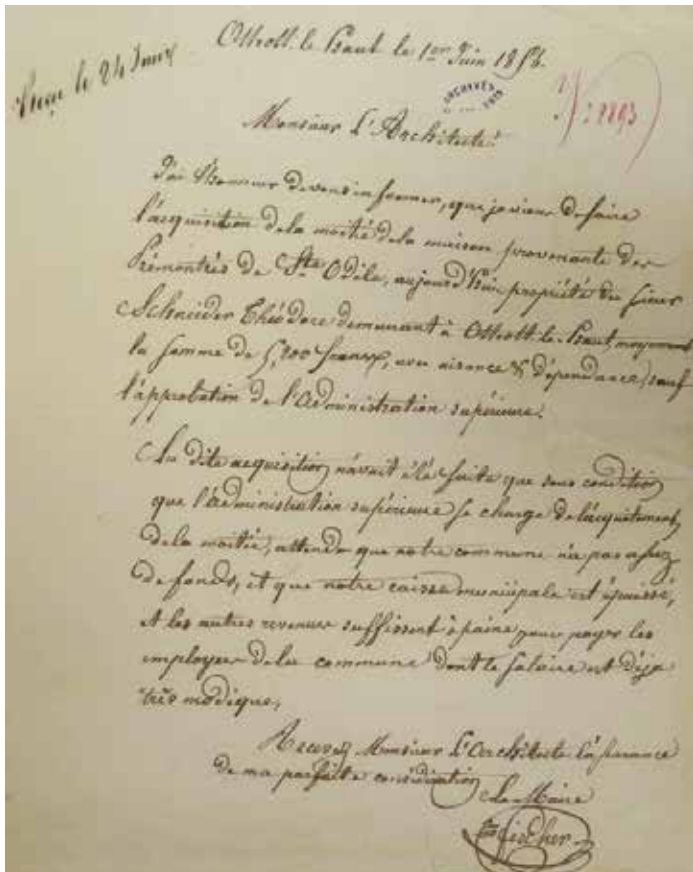 Ottrott-le-Haut le 1er Juin 1858.
Reçu le 24 Juin
ARCHIVES
N: 2893
Monsieur l'Architecte!
J'ai l'honneur de vous informer, que je viens de faire
l'acquisition de la moitié de la maison provenante des
Prémontrés de Ste Odile, aujourd'hui propriété du sieur
Schneider Théodore demeurant à Ottrott-le-Haut, moyennant
la somme de francs, avec aisance & dépendance, sauf
l'approbation de l'administration supérieure.
La dite acquisition n'avait été faite que sous condition
que l'administration supérieure se charge de l'acquitement
de la moitié, attendu que notre commune n'a pas assez
de fonds, et que notre caisse municipale est épuisé,
et les autres revenus suffissent à peine pour payer les
employés de la commune dont le salaire est déja
très modique,
Recevez Monsieur l'Architecte l'assurance
de ma parfaite considération
Le Maire
Fischer